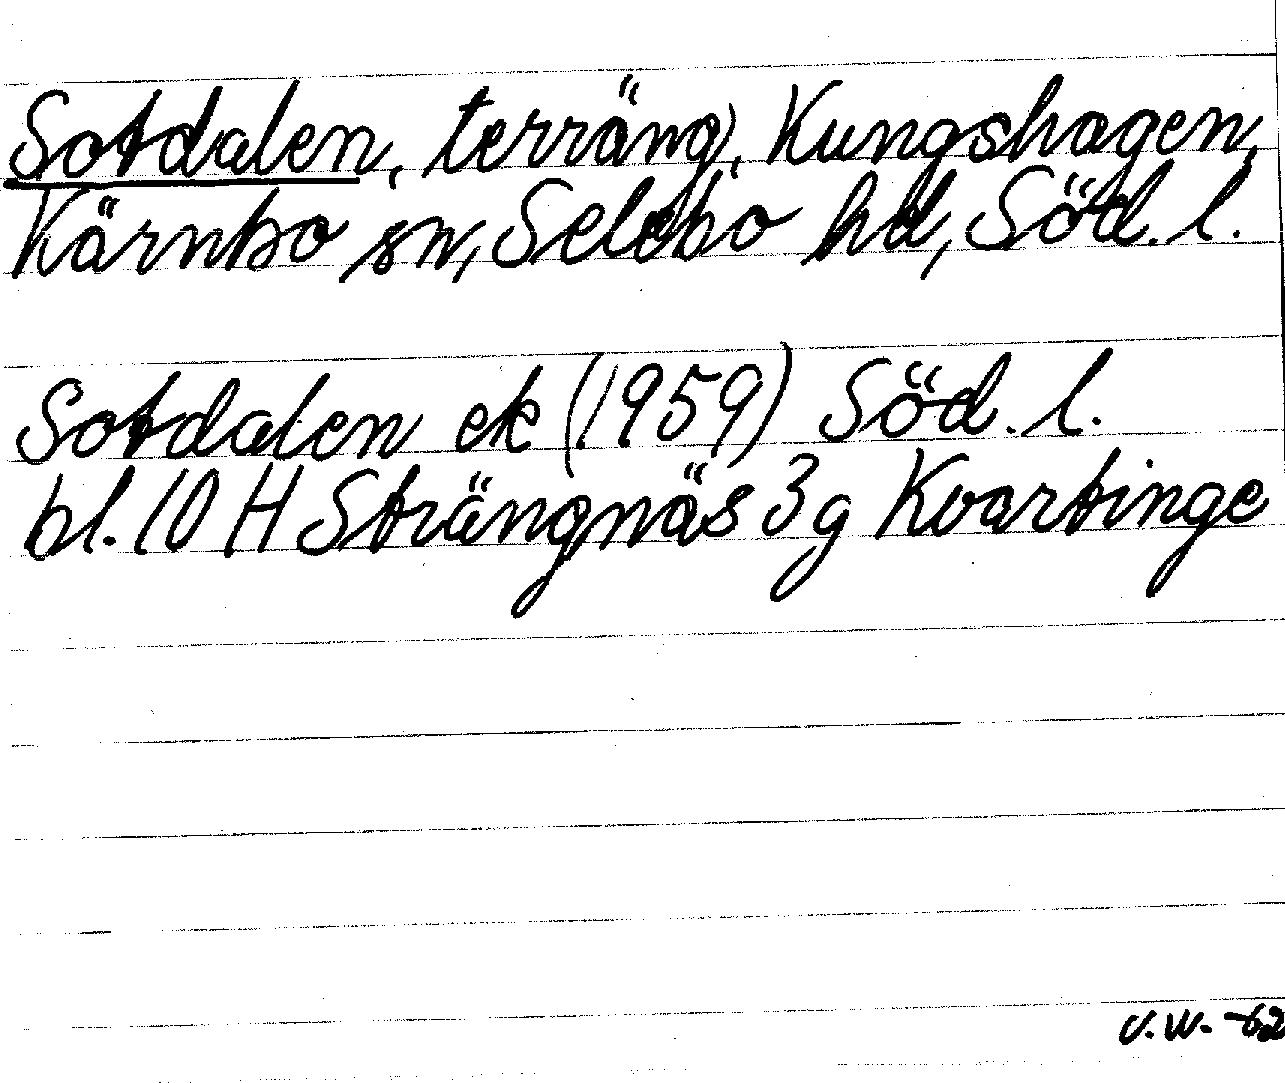 Sotdalen, terräng, Kungshagen,
Kärnbo sn, Selebo hd, Söd. l.
Sotdalen ek (1959) Söd. l.
bl. 10 H Strängnäs 3 g Kvartinge
U.W. -62